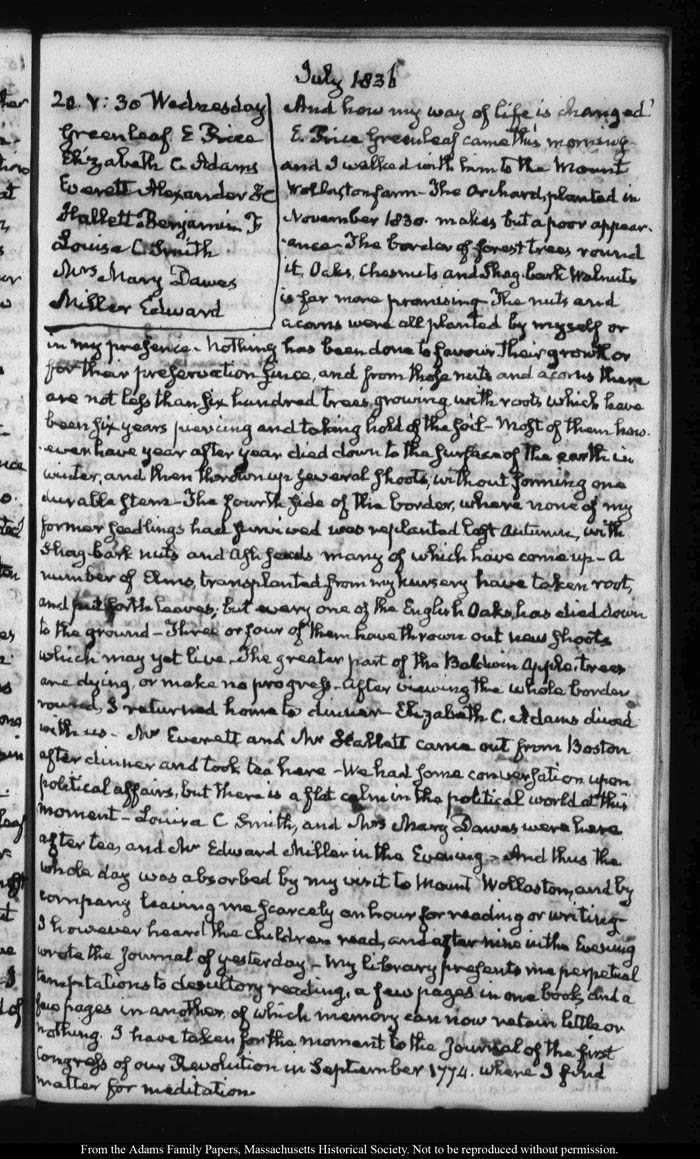 July 1836
20. V: 30 Wednesday
Greenleaf E Price
Elizabeth C. Adams
Everett Alexander &c
Hallett Benjamin F
Louisa C. Smith
Mrs Mary Dawes
Miller Edward
And how my way of life is changed!
E. Price Greenleaf came this morning
and I walked with him to the Mount
Wollaston farm - The Orchard, planted in
November 1830. makes but a poor appear-
-ance - The border of forest trees round
it, Oaks, Chesnuts and Shag-bark Walnuts
is far more promising - The nuts and
acorns were all planted by myself or
in my presence - Nothing has been done to favour their growth or
for their preservation since, and from those nuts and acorns there
are not less than six hundred trees, growing with roots which have
been six years piercing and taking hold of the soil - Most of them how-
-ever have year after year died down to the surface of the earth in
winter, and then thrown up several shoots, without forming one
durable stem - The fourth side of the border, where none of my
former seedlings had survived was replanted last Autumn, with
Shag-bark nuts and Ash seeds many of which have come up - A
number of Elms, transplanted from my nursery have taken root,
and put forth leaves; but every one of the English Oaks, has died down
to the ground - Three or four of them have thrown out new shoots
which may yet live. The greater part of the Baldwin Apple-trees
are dying, or make no progress. After viewing the whole border
round, I returned home to dinner - Elizabeth C. Adams dined
with us - Mr Everett and Mr Hallett came out from Boston
after dinner and took tea here - We had some conversation upon
political affairs, but there is a flat calm in the political world at this
moment - Louisa C Smith, and Mrs Mary Dawes were here
after tea, and Mr Edward Miller in the Evening - And thus the
whole day was absorbed by my visit to Mount Wollaston, and by
company leaving me scarcely an hour for reading or writing -
I however heard the children read, and after nine in the Evening
wrote the Journal of yesterday - My library presents me perpetual
temptations to desultory reading, a few pages in one book, and a
few pages in another, of which memory can now retain little or
nothing. I have taken for the moment to the Journal of the first
Congress of our Revolution in September 1774. where I find
matter for meditation.
From the Adams Family Papers, Massachusetts Historical Society. Not to be reproduced without permission.